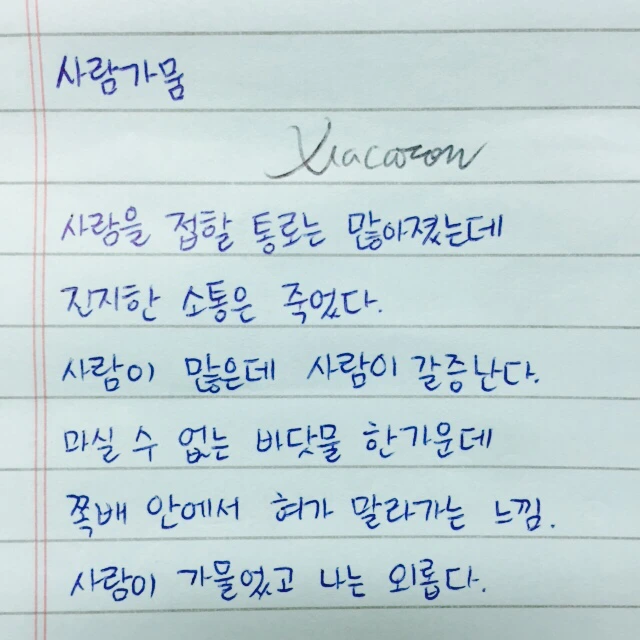 사람가뭄
Xiacaron
사람을 접할 통로는 많아졌는데
진지한 소통은 죽었다.
사람이 많은데 사람이 갈증난다.
마실 수 없는 바닷물 한가운데
쪽배 안에서 혀가 말라가는 느낌.
사람이 가물었고 나는 외롭다.